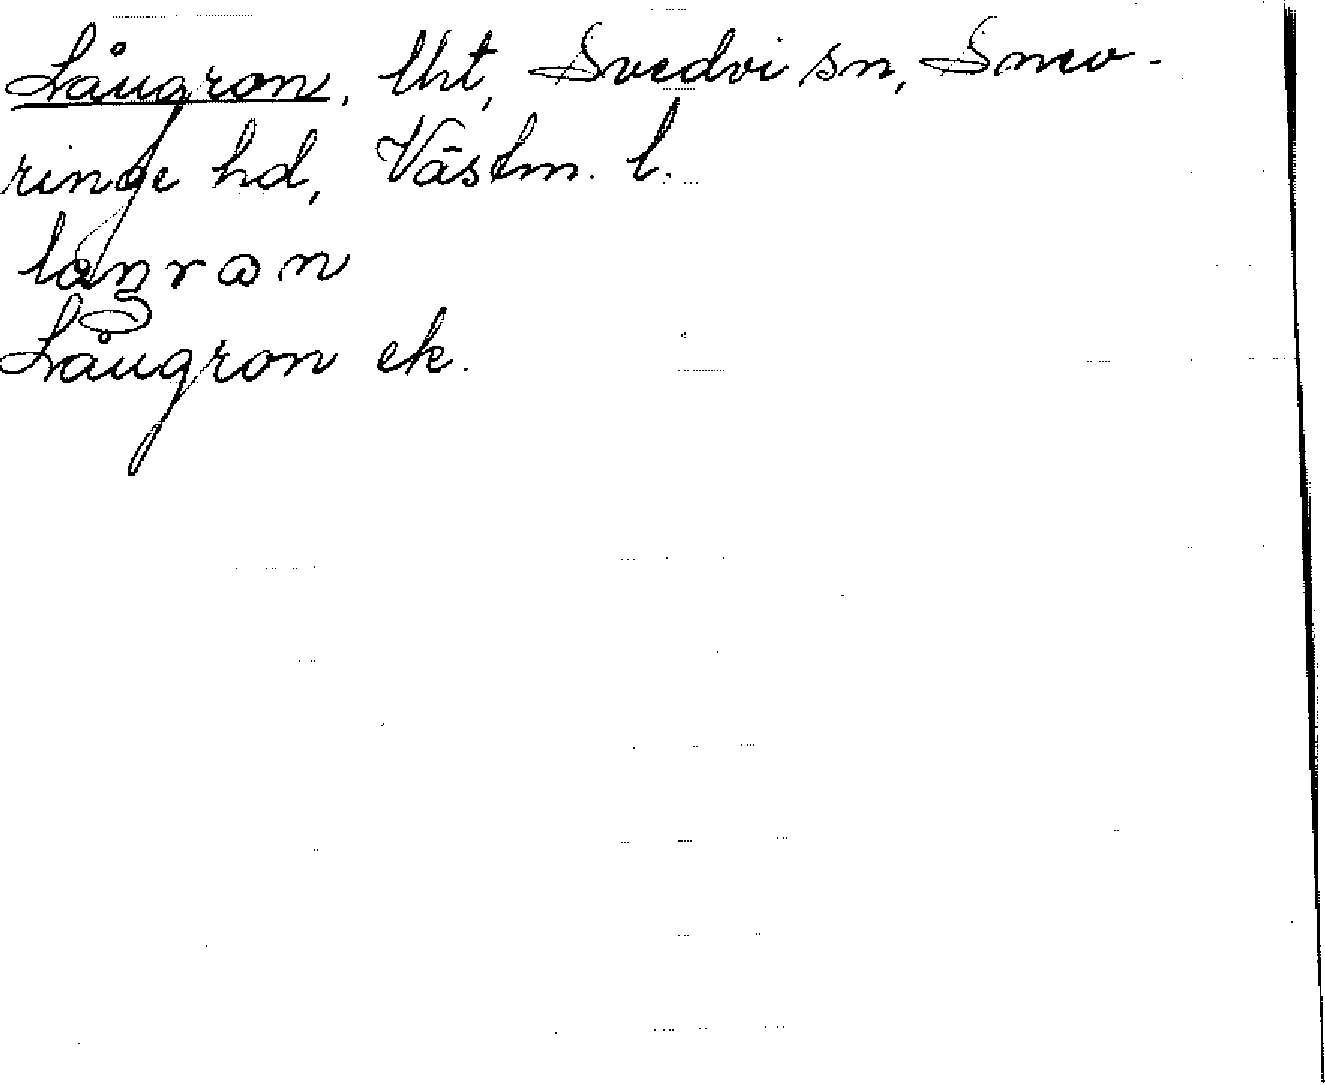 Långron, lht, Svedvi sn, Snev-
ringe hd, Västm. l.
Långron ek.